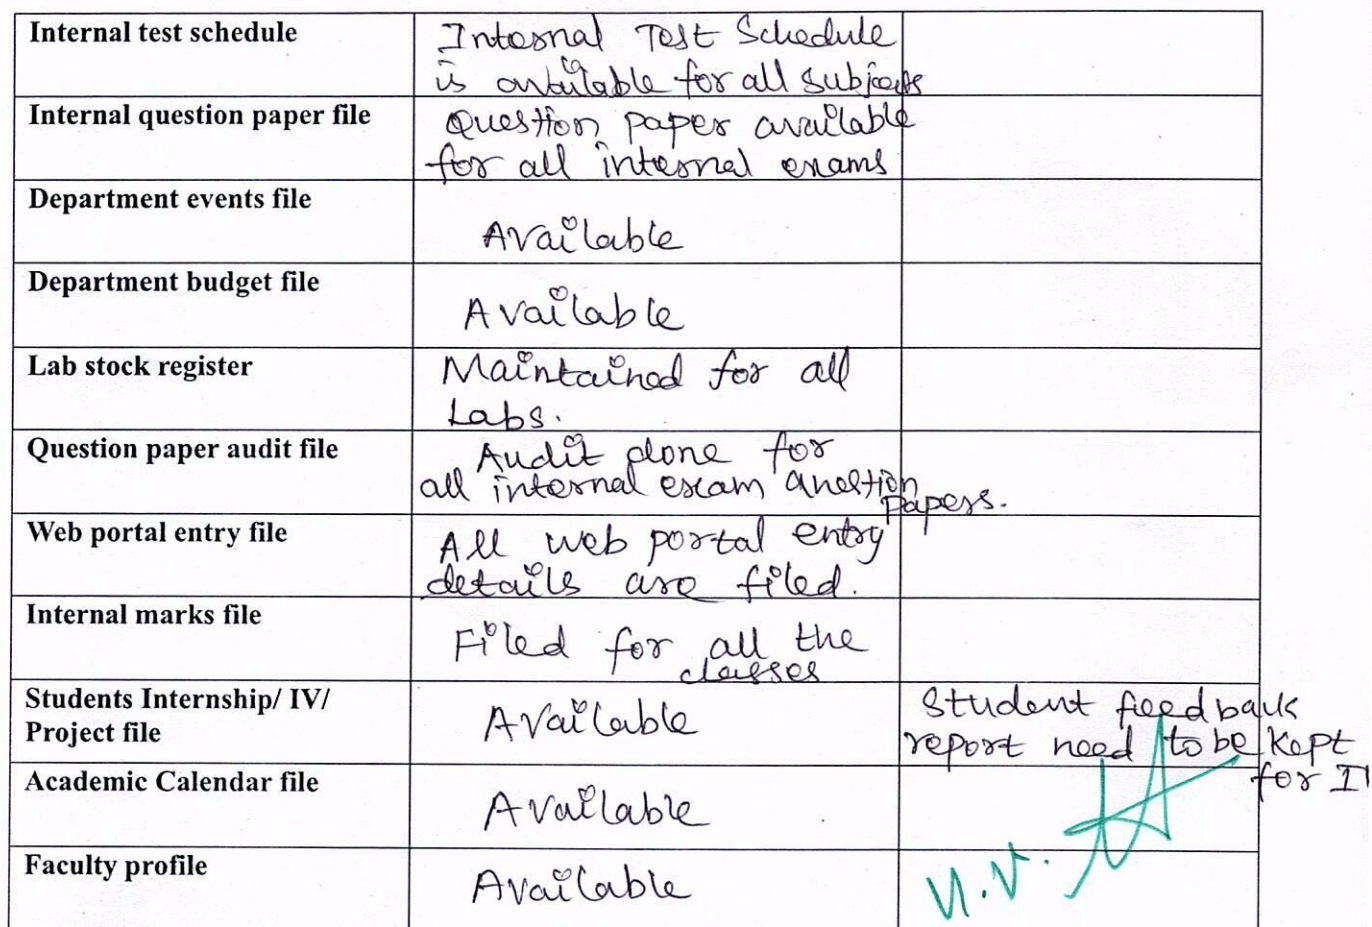 Internal test schedule
Internal Test Schedule
is available for all subjects
Internal question paper file
Question paper available
for all internal exams
Department events file
Available
Department budget file
Available
Lab stock register
Maintained for all
Labs.
Question paper audit file
Audit done for
all internal exam question
papers.
Web portal entry file
All web portal entry
details are filed.
Internal marks file
Filed for all the
classes
Students Internship/ IV/
Project file
Available
Student feedback
report need to be kept
for
Academic Calendar file
Available
Faculty profile
Available